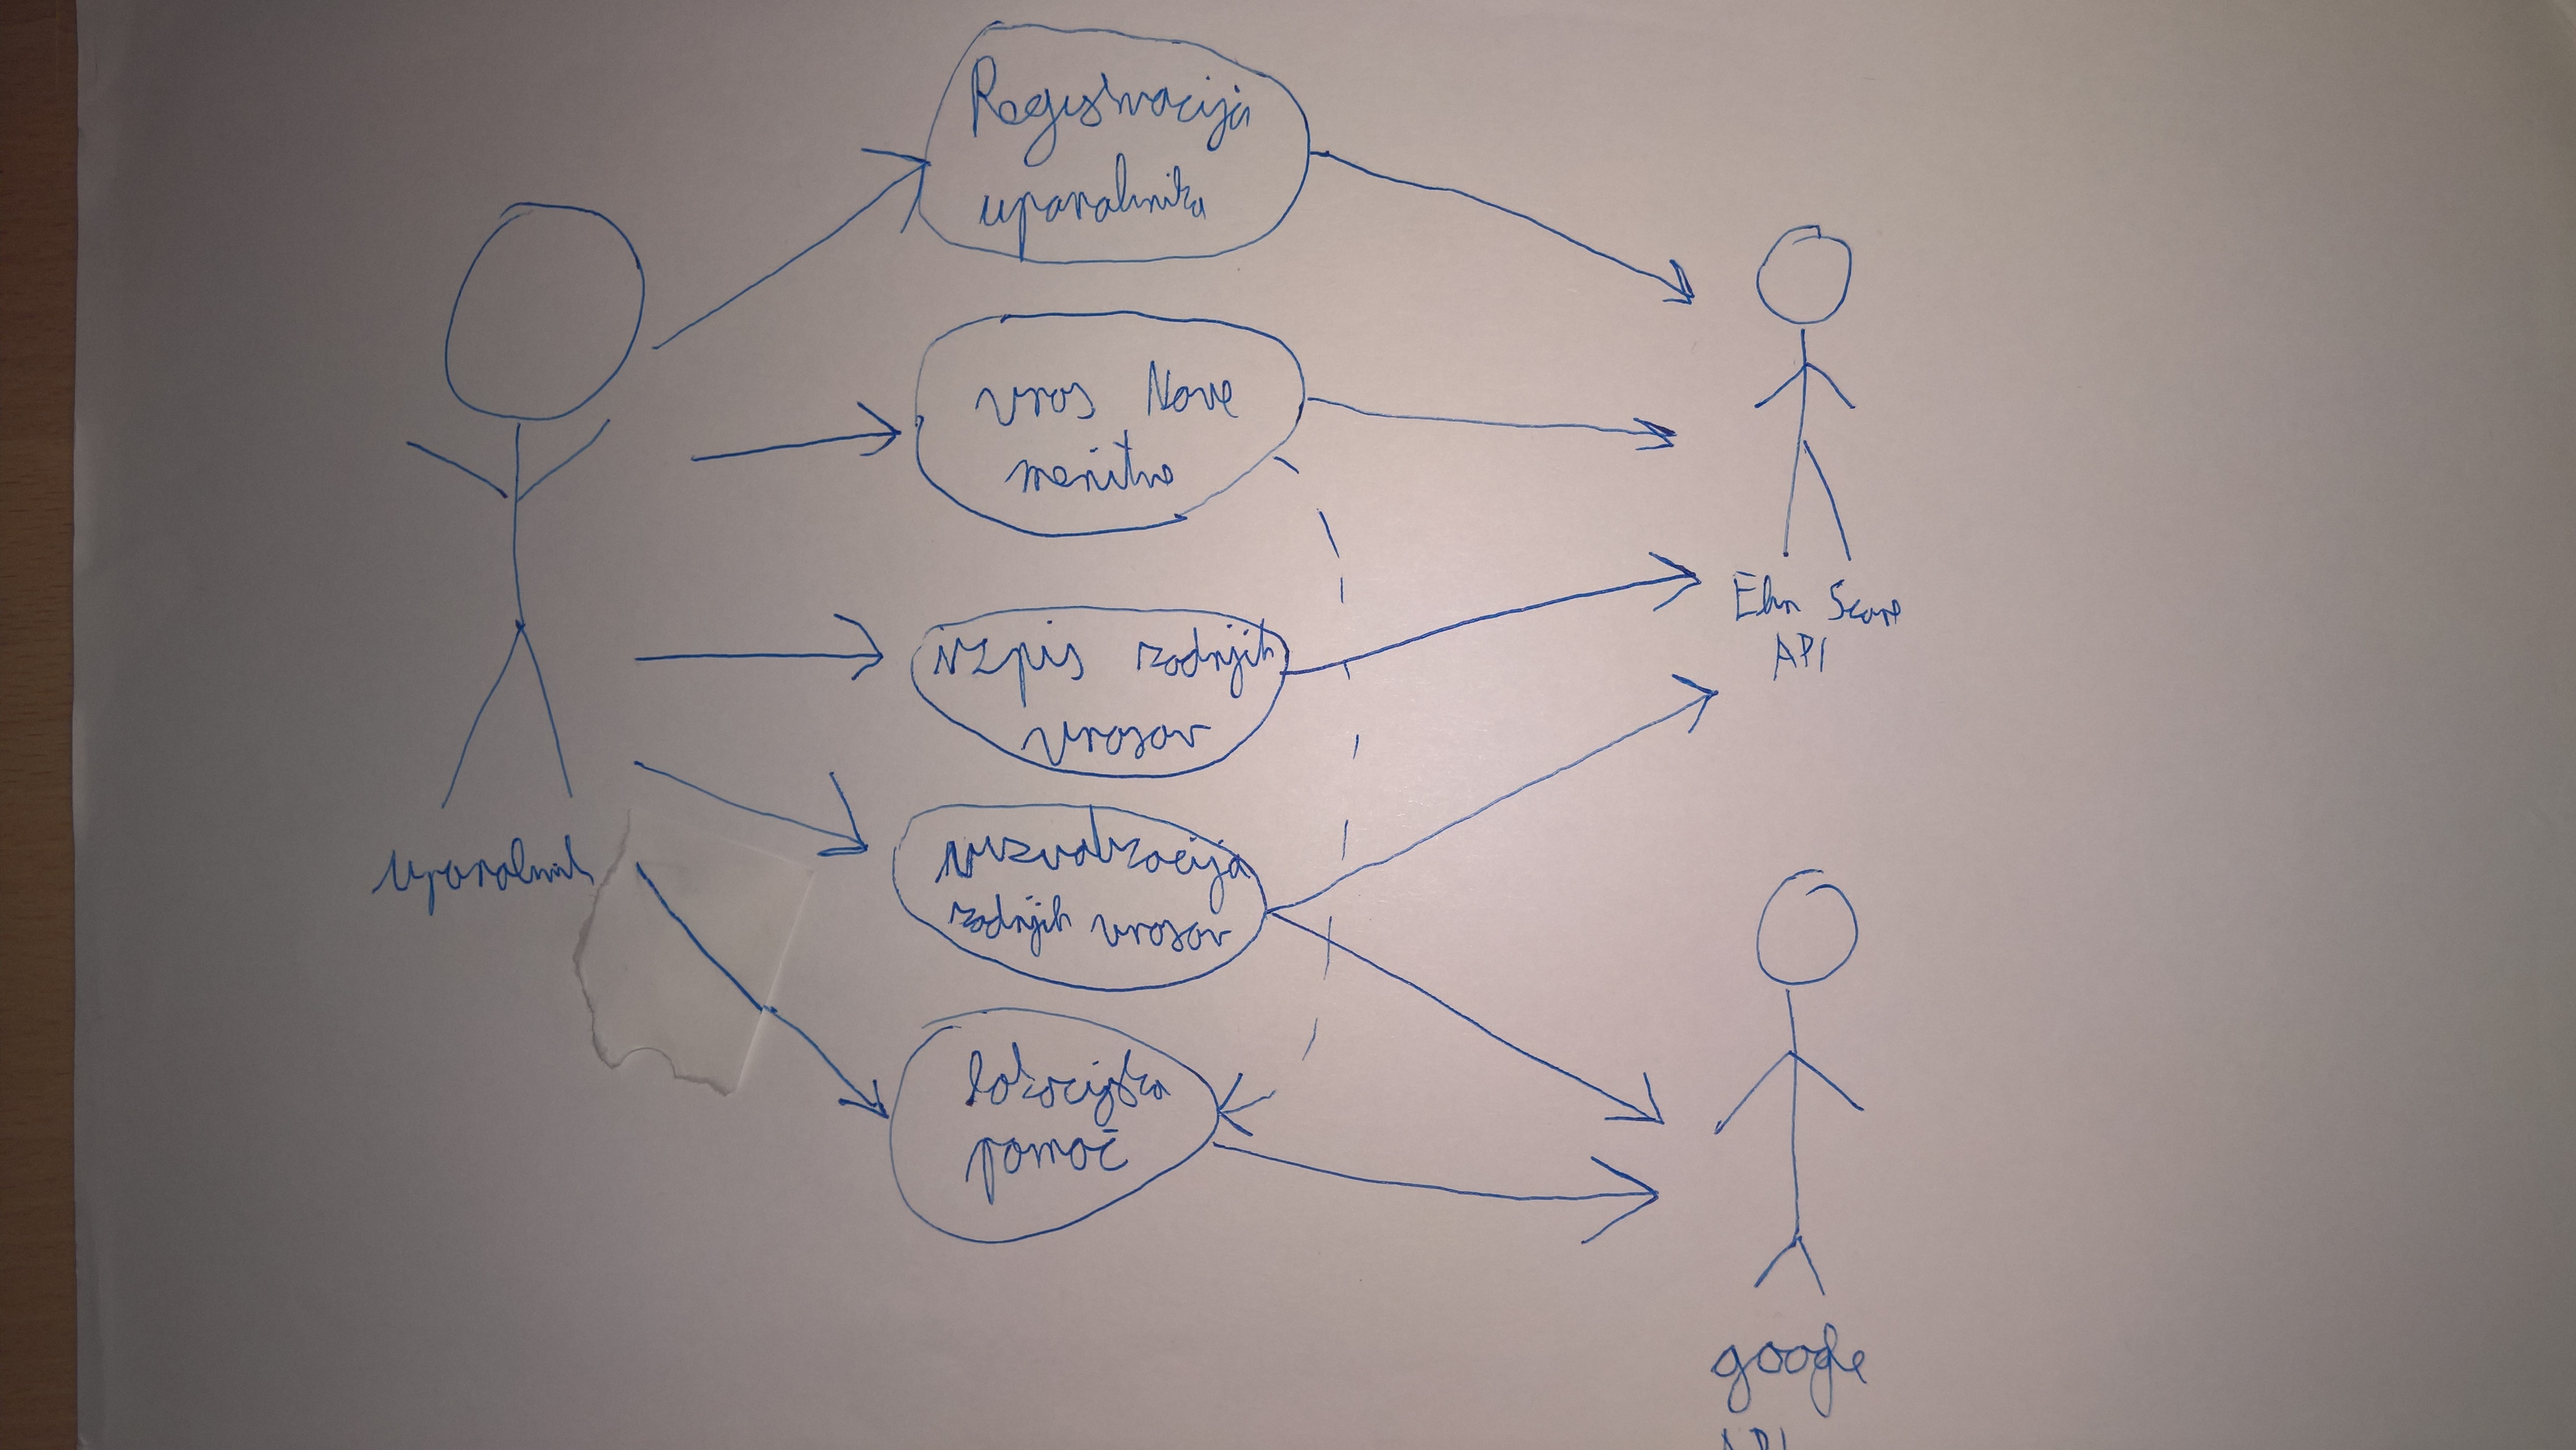 Registracija
uporabnika
vnos Nove
meritve
izpis zadnjih
vnosov
vizualizacija
zadnjih vnosov
lokacijska
pomoč
uporabnik
Ehr Scape
API
google
API